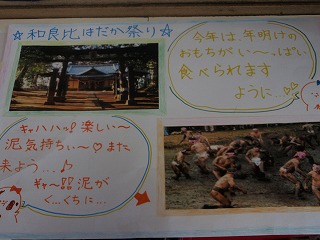 ☆和良比はだか祭り☆
今年は年明けの
おもちがい〜っぱい
食べられます
ように…♡
キャハハっ!楽しい〜
泥気持ちぃ〜♡また
来よう…♪
ギャ〜泥が
く…くちに…